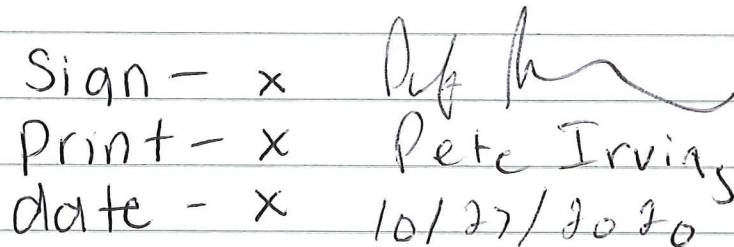 Sign - x
Print - x Pete Irving
date - x 10/27/2020